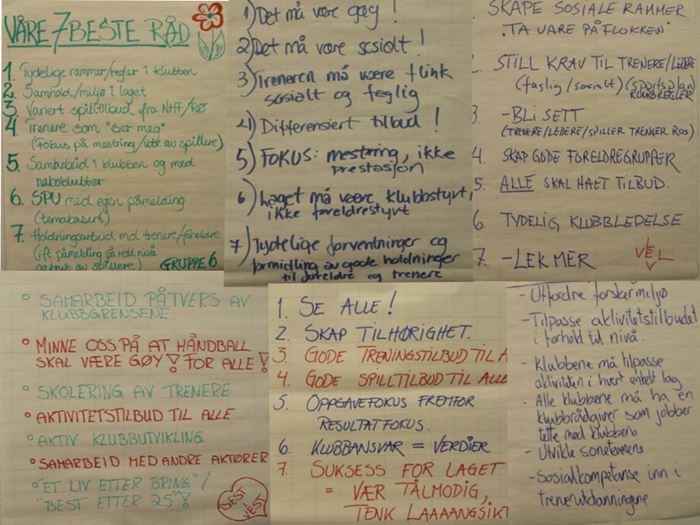 VÅRE 7 BESTE RÅD
1. Tydelige rammer/regler i klubben
2. Samhold/miljø i laget
3. Variert spilltilbud fra NHF/
4. Trenere som "ser meg"
(Fokus på mestring/utv. av spillere)
5. Samarbeid i klubben og med
naboklubber
6. SPU med egen påmelding
(temabasert)
7. Holdningsarbeid mot trenere/foreldre
(ift påmelding på rett nivå
og bruk av spillere)
GRUPPE 6
1) Det må være gøy!
2) Det må være sosialt!
3) Treneren må være flink
sosialt og faglig
4) Differensiert tilbud!
5) FOKUS: mestring, ikke
prestasjon
6) Laget må være klubbstyrt,
ikke foreldrestyrt
7) Tydelige forventninger og
formidling av gode holdninger
til foreldre og trenere
SKAPE SOSIALE RAMMER
"TA VARE PÅ FLOKKEN"
STILL KRAV TIL TRENERE/LEDERE
(faglig/sosialt) (sportsplan
KLUBBREGLER
3 -BLI SETT
(TRENERE/LEDERE/SPILLER TRENGER ROS)
4. SKAP GODE FORELDREGRUPPER
5. ALLE SKAL HA ET TILBUD.
6 TYDELIG KLUBBLEDELSE
7 -LEK MER
VEL
° SAMARBEID PÅ TVERS AV
KLUBBGRENSENE
° MINNE OSS PÅ AT HÅNDBALL
SKAL VÆRE GØY! FOR ALLE!
° SKOLERING AV TRENERE
° AKTIVITETSTILBUD TIL ALLE
° AKTIV KLUBBUTVIKLING
° SAMARBEID MED ANDRE AKTØRER
° "ET LIV ETTER BRING"/
"BEST ETTER 25"!
BEST
VEST
1. SE ALLE!
2. SKAP TILHØRIGHET.
3 GODE TRENINGSTILBUD TIL A
4. GODE SPILLTILBUD TIL ALLE
5 OPPGAVEFOKUS FREMFOR
RESULTATFOKUS.
6. KLUBBANSVAR = VERDIER
7. SUKSESS FOR LAGET
= VÆR TÅLMODIG,
TENK LAAAANGSIKT
- Utfordre forskermiljø
- Tilpasse aktivitetstilbudet
i forhold til nivå.
- Klubbene må tilpasse
aktiviteten i hvert enkelt lag
- Alle klubbene må ha en
klubbrådgiver som jobber
tette med klubben
- Utvikle soneteamene
- Sosialkompetanse inn i
trenerutdanningene